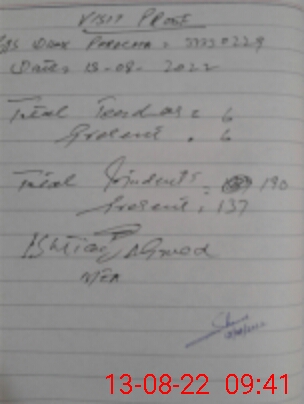 VISIT PROOF
GBS Dhok Paracha = 37330229
Date = 13-08-2022
Total Teachers = 6
Present = 6
Total Students = 190
Present = 137
Ishtiaq Ahmed
MEA
13-08-22 09:41